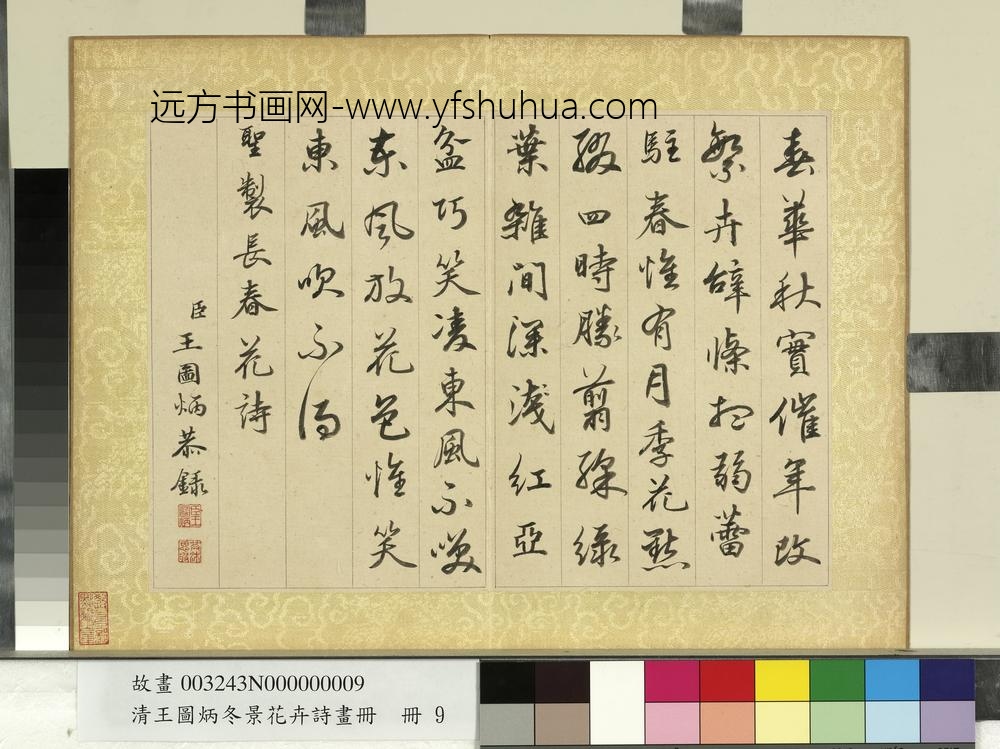 远方书画网-www.yfshuhua.com
春華秋實催年改
繁卉辭條抱弱蕾
駐春惟有月季花點
綴四時勝翦綵綠
葉雜間深淺紅亞
盆巧笑凌東風不嘆
東風放花色惟笑
東風吹不得
聖製長春花詩
臣王圖炳恭録
故畫 003243N000000009
清王圖炳冬景花卉詩畫冊 冊 9